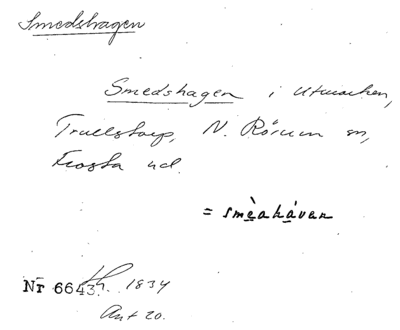 Smedshagen
Smedshagen i Utmarken,
Trullstorp, N. Rörum sn,
Frosta hd.
= smèahávan
Nr 6643. 1834
Ant 20.